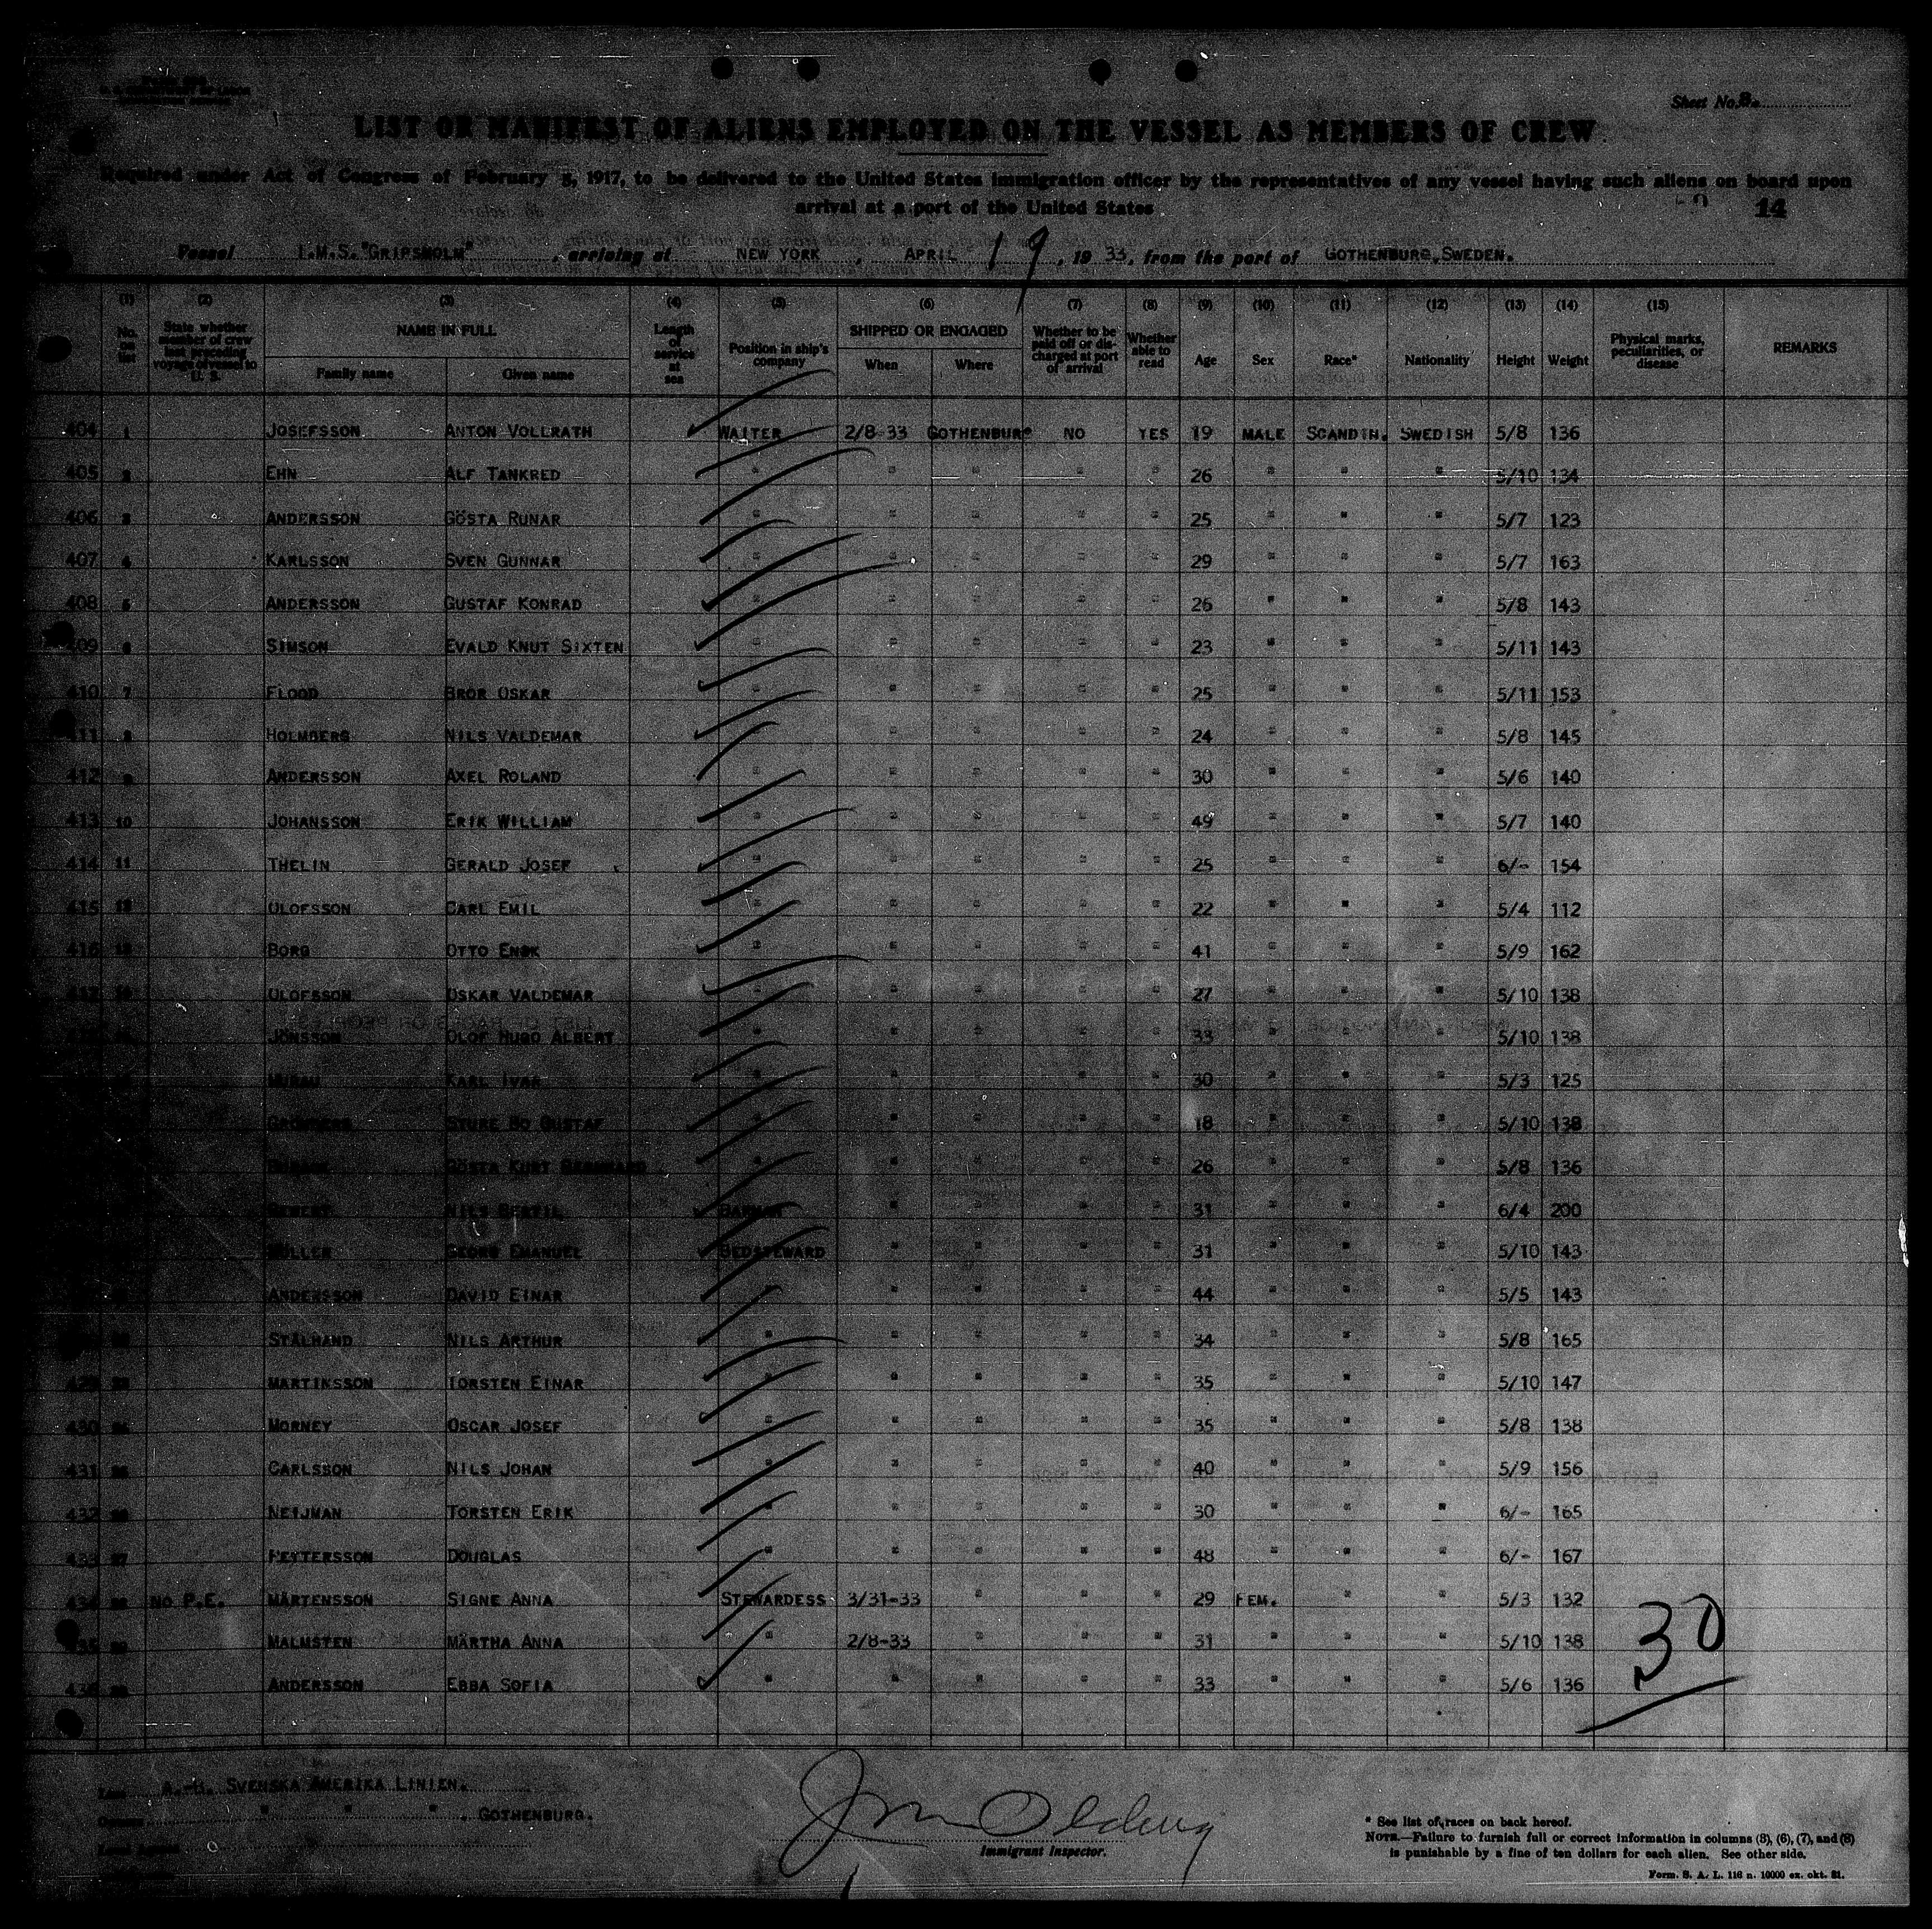 Sheet No. 8.
LIST OR MANIFEST OF ALIENS EMPLOYED ON THE VESSEL AS MEMBERS OF CREW
Required under Act of Congress of February 5, 1917, to be delivered to the United States immigration officer by the representatives of any vessel having such aliens on board upon
arrival at a port of the United States
14
Vessel I.M.S. "GRIPSHOLM", arriving at NEW YORK, APRIL 19, 1933, from the port of GOTHENBURG, SWEDEN.
(1) (2) (3) (4) (5) (6) (7) (8) (9) (10) (11) (12) (13) (14) (15)
No. on list State whether member of crew last preceding voyage of vessel to U. S. NAME IN FULL Family name Given name Length of service at sea Position in ship's company SHIPPED OR ENGAGED When Where Whether to be paid off or discharged at port of arrival Whether able to read Age Sex Race* Nationality Height Weight Physical marks, peculiarities, or disease REMARKS
404 1 JOSEFSSON ANTON VOLLRATH WAITER 2/8-33 GOTHENBURG NO YES 19 MALE SCANDIN. SWEDISH 5/8 136
405 2 EHN ALF TANKRED " " " " " 26 " " " 5/10 134
406 3 ANDERSSON GÖSTA RUNAR " " " " " 25 " " " 5/7 123
407 4 KARLSSON SVEN GUNNAR " " " " " 29 " " " 5/7 163
408 5 ANDERSSON GUSTAF KONRAD " " " " " 26 " " " 5/8 143
409 6 SIMSON EVALD KNUT SIXTEN " " " " " 23 " " " 5/11 143
410 7 FLOOD BROR OSKAR " " " " " 25 " " " 5/11 153
411 8 HOLMBERG NILS VALDEMAR " " " " " 24 " " " 5/8 145
412 9 ANDERSSON AXEL ROLAND " " " " " 30 " " " 5/6 140
413 10 JOHANSSON ERIK WILLIAM " " " " " 49 " " " 5/7 140
414 11 THELIN GERALD JOSEF " " " " " 25 " " " 6/- 154
415 12 OLOFSSON CARL EMIL " " " " " 22 " " " 5/4 112
416 13 BORG OTTO ENOK " " " " " 41 " " " 5/9 162
417 14 OLOFSSON OSKAR VALDEMAR " " " " " 27 " " " 5/10 138
JÖNSSON OLOF HUGO ALBERT " " " " " 33 " " " 5/10 138
KARL IVAR " " " " " 30 " " " 5/3 125
STURE BO GUSTAF " " " " " 18 " " " 5/10 138
GÖSTA KURT " " " " " 26 " " " 5/8 136
NILS BERTIL " " " " 31 " " " 6/4 200
GEORG EMANUEL BEDSTEWARD " " " " 31 " " " 5/10 143
ANDERSSON DAVID EINAR " " " " " 44 " " " 5/5 143
STÅLHAND NILS ARTHUR " " " " " 34 " " " 5/8 165
MARTINSSON TORSTEN EINAR " " " " " 35 " " " 5/10 147
430 MORNEY OSCAR JOSEF " " " " " 35 " " " 5/8 138
431 CARLSSON NILS JOHAN " " " " " 40 " " " 5/9 156
432 NEIJMAN TORSTEN ERIK " " " " " 30 " " " 6/- 165
433 27 PETTERSSON DOUGLAS " " " " " 48 " " " 6/- 167
434 NO P.E. MÅRTENSSON SIGNE ANNA STEWARDESS 3/31-33 " " " 29 FEM. " " 5/3 132
435 MALMSTEN MÄRTHA ANNA " 2/8-33 " " " 31 " " " 5/10 138
436 ANDERSSON EBBA SOFIA " " " " " 33 " " " 5/6 136
30
Line A.-B. SVENSKA AMERIKA LINIEN.
Owners " " " , GOTHENBURG.
Local Agents
Immigrant Inspector.
* See list of races on back hereof.
NOTE.—Failure to furnish full or correct information in columns (3), (6), (7), and (8)
is punishable by a fine of ten dollars for each alien. See other side.
Form. S. A. L. 116 n. 10000 ex. okt. 31.